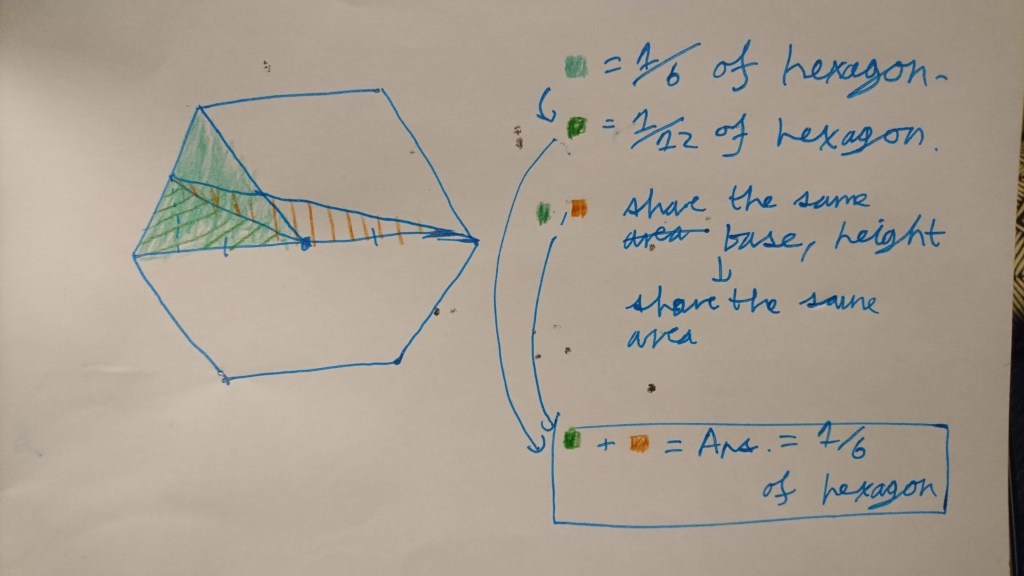 = 1/6 of hexagon.
= 1/12 of hexagon.
, share the same
area base, height
↓
share the same
area
+ = Ans. = 1/6
of hexagon